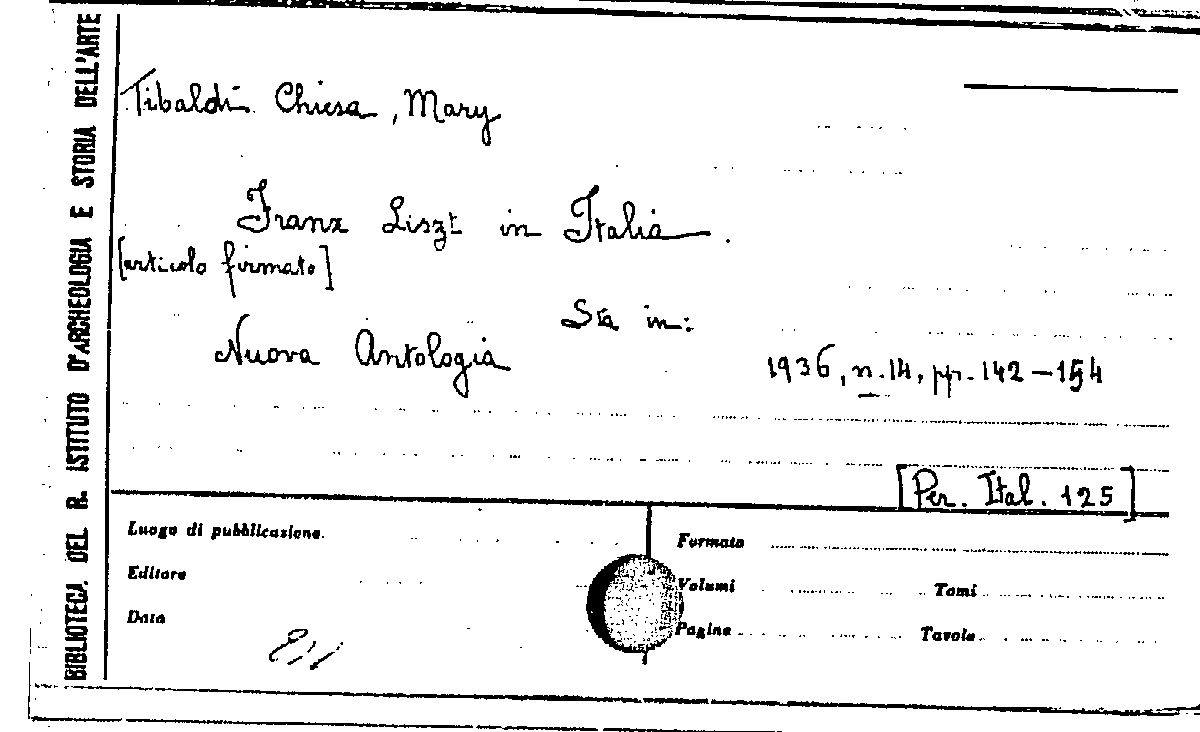 BIBLIOTECA DEL R. ISTITUTO D'ARCHEOLOGIA E STORIA DELL'ARTE
Tibaldi Chiesa, Mary
Franz Liszt in Italia.
[articolo firmato]
Sta in:
Nuova Antologia
1936, n. 14, pp. 142-154
[Per. Ital. 125]
Luogo di pubblicazione
Editore
Data
Formato
Volumi Tomi
Pagine Tavole